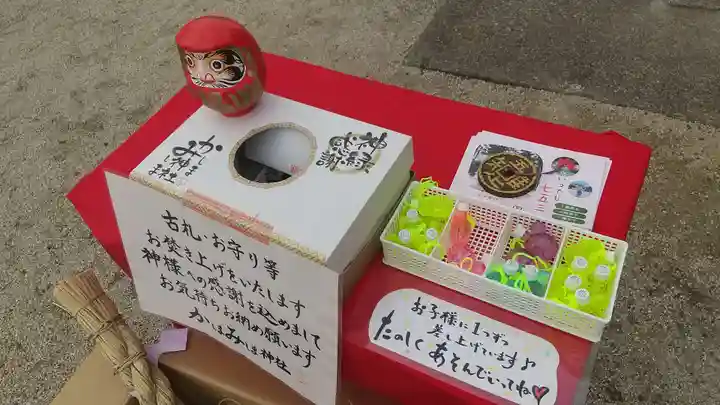 神縁
感謝
かしま
み神社
しま
古札・お守り等
お焚き上げをいたします
神様への感謝を込めまして
お気持ちお納め願います
かしまみしま神社
七五三
お子様に1つずつ
差し上げています♪
たのしくあそんでいってね♡